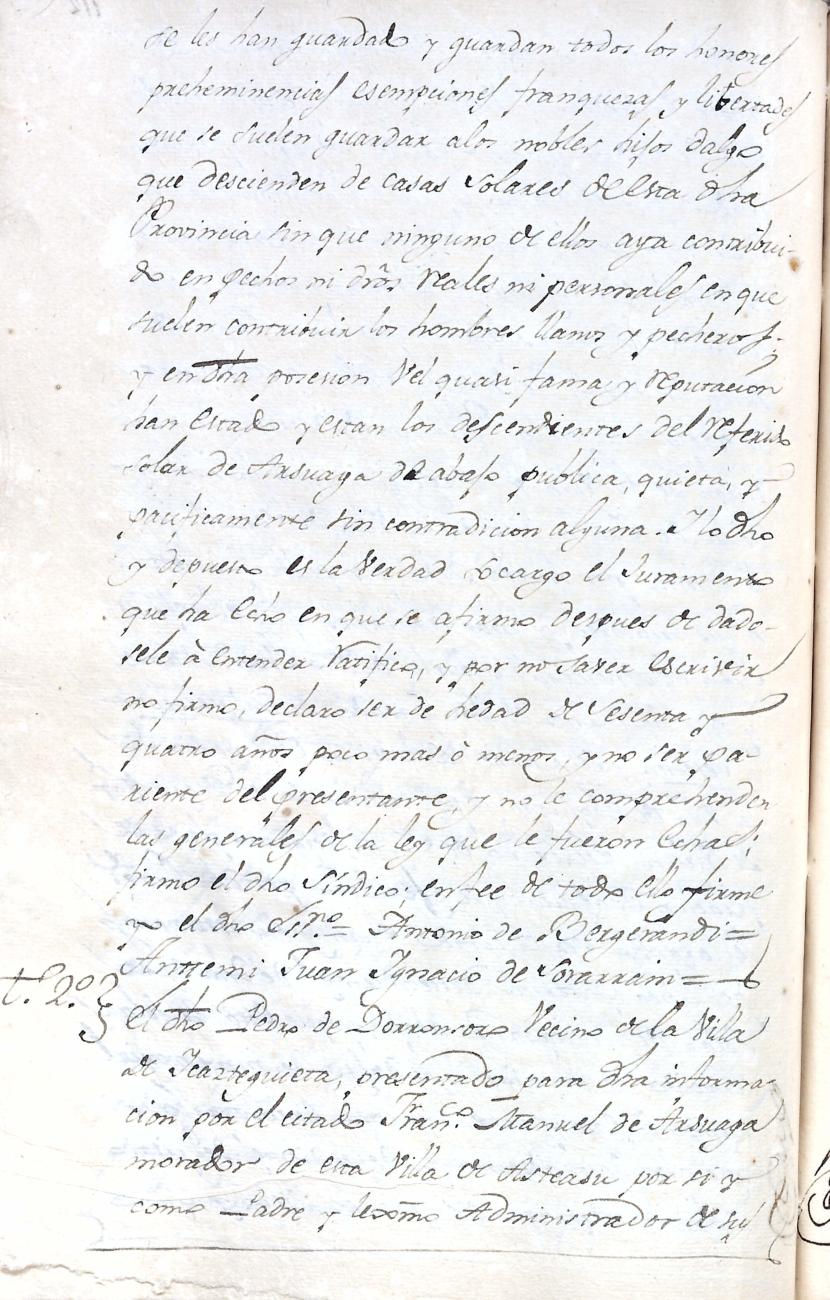 se les han guardado y guardan todos los honores
preheminencias esempciones franquezas y libertades
que se suelen guardar a los nobles hijos dalgo
que descienden de casas solares de esta dha
Provincia sin que ninguno de ellos aya contribui-
do en pechos ni dros reales ni personales en que
suelen contribuir los hombres llanos y pecheros;
y en dha posesion vel quasi fama y reputacion
han estado y estan los descendientes del referido
solar de Arsuaga de abajo publica, quieta, y
pacificamente sin contradicion alguna. Y lo dho
y depuesto es la verdad so cargo el Juramento
que ha echo en que se afirmo despues de dado-
sele à entender ratifico, y por no saver escrivir
no firmo, declaro ser de hedad de sesenta y
quatro años poco mas ò menos, y no ser pa-
riente del presentante, y no le comprehenden
las generales de la ley que le fueron echas;
firmo el dho Síndico; en fee de todo ello firme
yo el dho Ssno = Antonio de Bergerandi =
Anttemi Juan Ygnacio de Sorarrain =
t.º 2.º
El dho Pedro de Dorronsoro Vecino de la Villa
de Icazteguieta, presentado para dha informa-
cion por el citado Franco. Manuel de Arsuaga
morador de esta Villa de Asteasu por si y
como Padre y lexmo Administrador de su